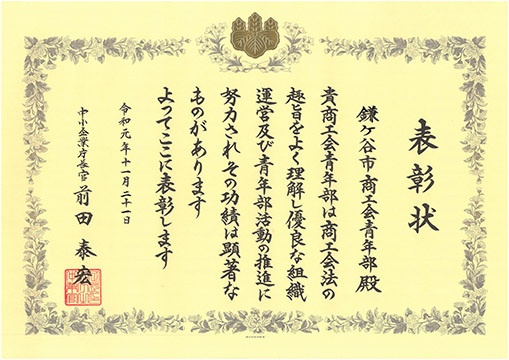 表彰状
鎌ケ谷市商工会青年部殿
貴商工会青年部は商工会法の
趣旨をよく理解し優良な組織
運営及び青年部活動の推進に
努力されその功績は顕著な
ものがあります
よってここに表彰します
令和元年十一月二十一日
中小企業庁長官 前田泰宏